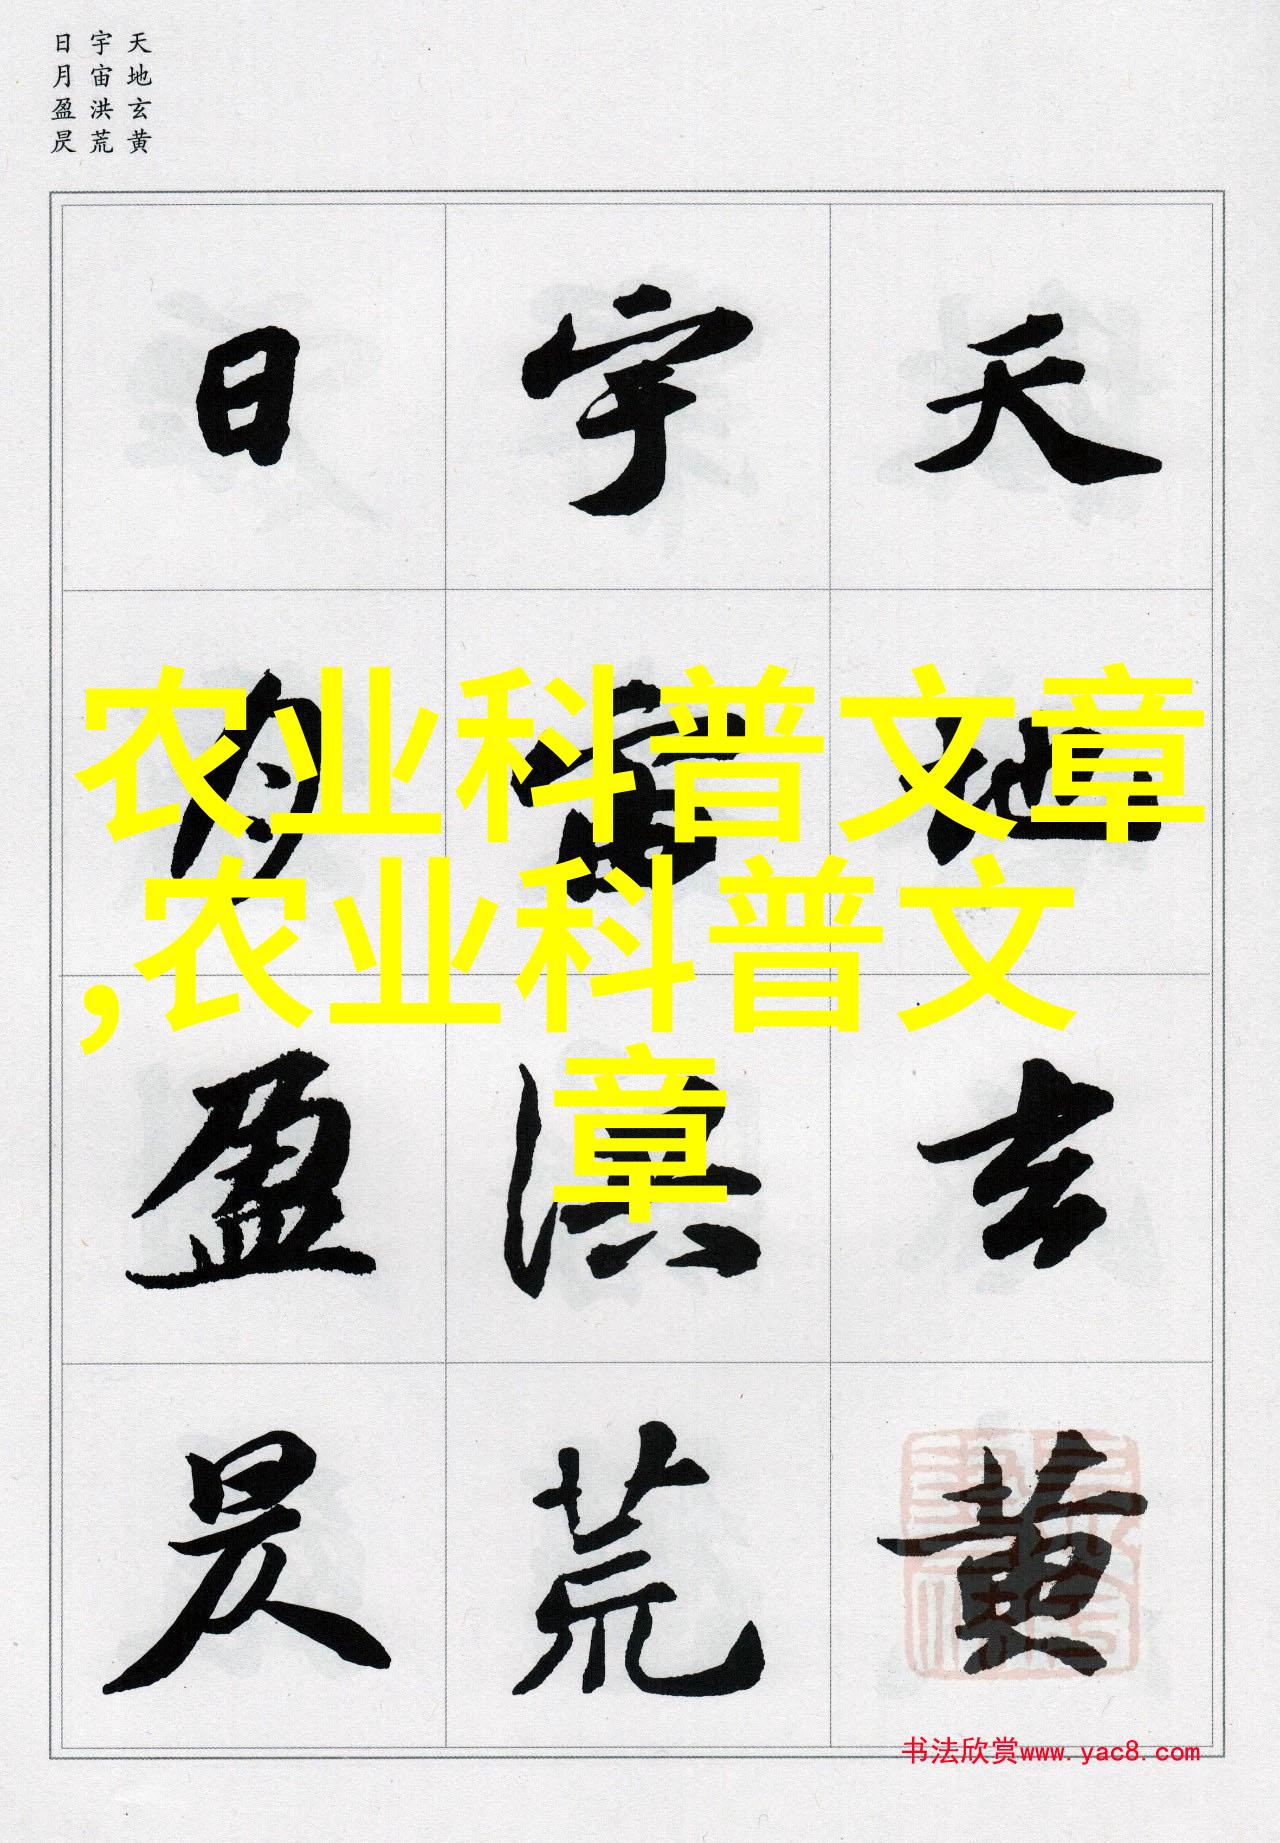 天地玄黄
宇宙洪荒
日月盈昃
农业科普文章
,农业科普文
章
天地玄黄
宇宙洪荒
日月盈昃
书法欣赏www.yac8.com